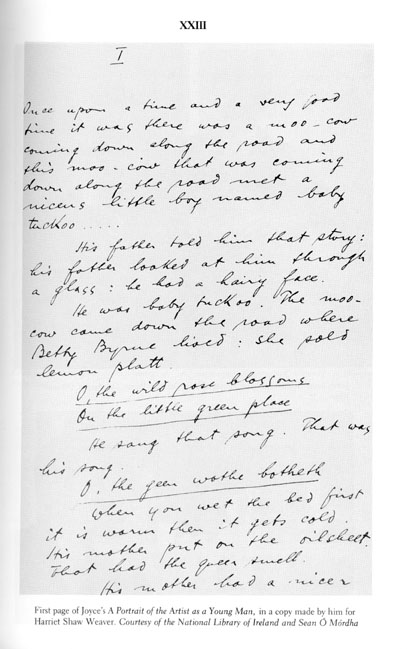 XXIII
I
Once upon a time and a very good
time it was there was a moo-cow
coming down along the road and
this moo-cow that was coming
down along the road met a
nicens little boy named baby
tuckoo .....
His father told him that story:
his father looked at him through
a glass: he had a hairy face.
He was baby tuckoo. The moo-
cow came down the road where
Betty Byrne lived: she sold
lemon platt.
O, the wild rose blossoms
On the little green place
He sang that song. That was
his song.
O, the geen wothe botheth
When you wet the bed first
it is warm then it gets cold.
His mother put on the oilsheet.
That had the queer smell.
His mother had a nicer
First page of Joyce's A Portrait of the Artist as a Young Man, in a copy made by him for
Harriet Shaw Weaver. Courtesy of the National Library of Ireland and Sean Ó Mórdha